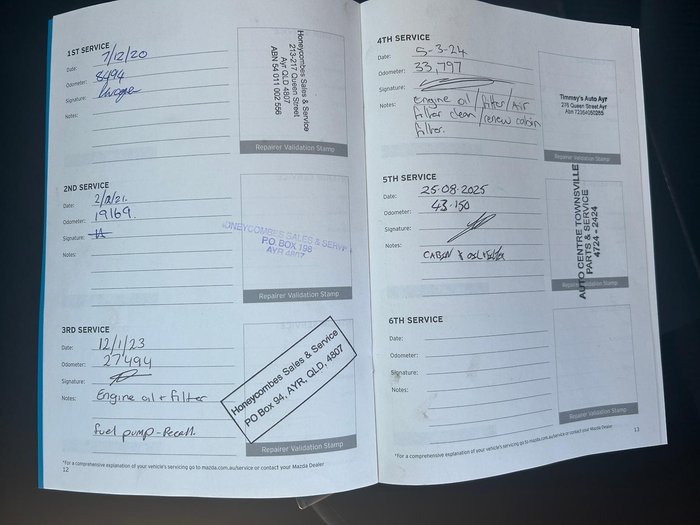 1ST SERVICE
Date: 7/12/20
Odometer: 8494
Signature:
Notes:
Honeycombes Sales & Service
213-217 Queen Street
Ayr QLD 4807
ABN 54 011 002 556
Repairer Validation Stamp
2ND SERVICE
Date:
Odometer: 19169.
Signature:
Notes:
ONEYCOMBES SALES & SERV
P.O. BOX 198
AYR 4807
Repairer Validation Stamp
3RD SERVICE
Date: 12/1/23
Odometer: 27494
Signature:
Notes: Engine oil + filter
fuel pump - Recall.
Honeycombes Sales & Service
PO Box 94, AYR, QLD, 4807
Repairer Validation Stamp
*For a comprehensive explanation of your vehicle's servicing go to mazda.com.au/service or contact your Mazda Dealer
12
4TH SERVICE
Date: 5-3-24
Odometer: 33,797
Signature:
Notes: engine oil / filter / Air
filter clean / renew cabin
filter.
Timmsy's Auto Ayr
276 Queen Street Ayr
Abn 72364050265
Repairer Validation Stamp
5TH SERVICE
Date: 25.08.2025
Odometer: 43.150
Signature:
Notes: CABIN & OIL
AUTO CENTRE TOWNSVILLE
PARTS & SERVICE
4724 * 2424
Repairer Validation Stamp
6TH SERVICE
Date:
Odometer:
Signature:
Notes:
Repairer Validation Stamp
*For a comprehensive explanation of your vehicle's servicing go to mazda.com.au/service or contact your Mazda Dealer
13